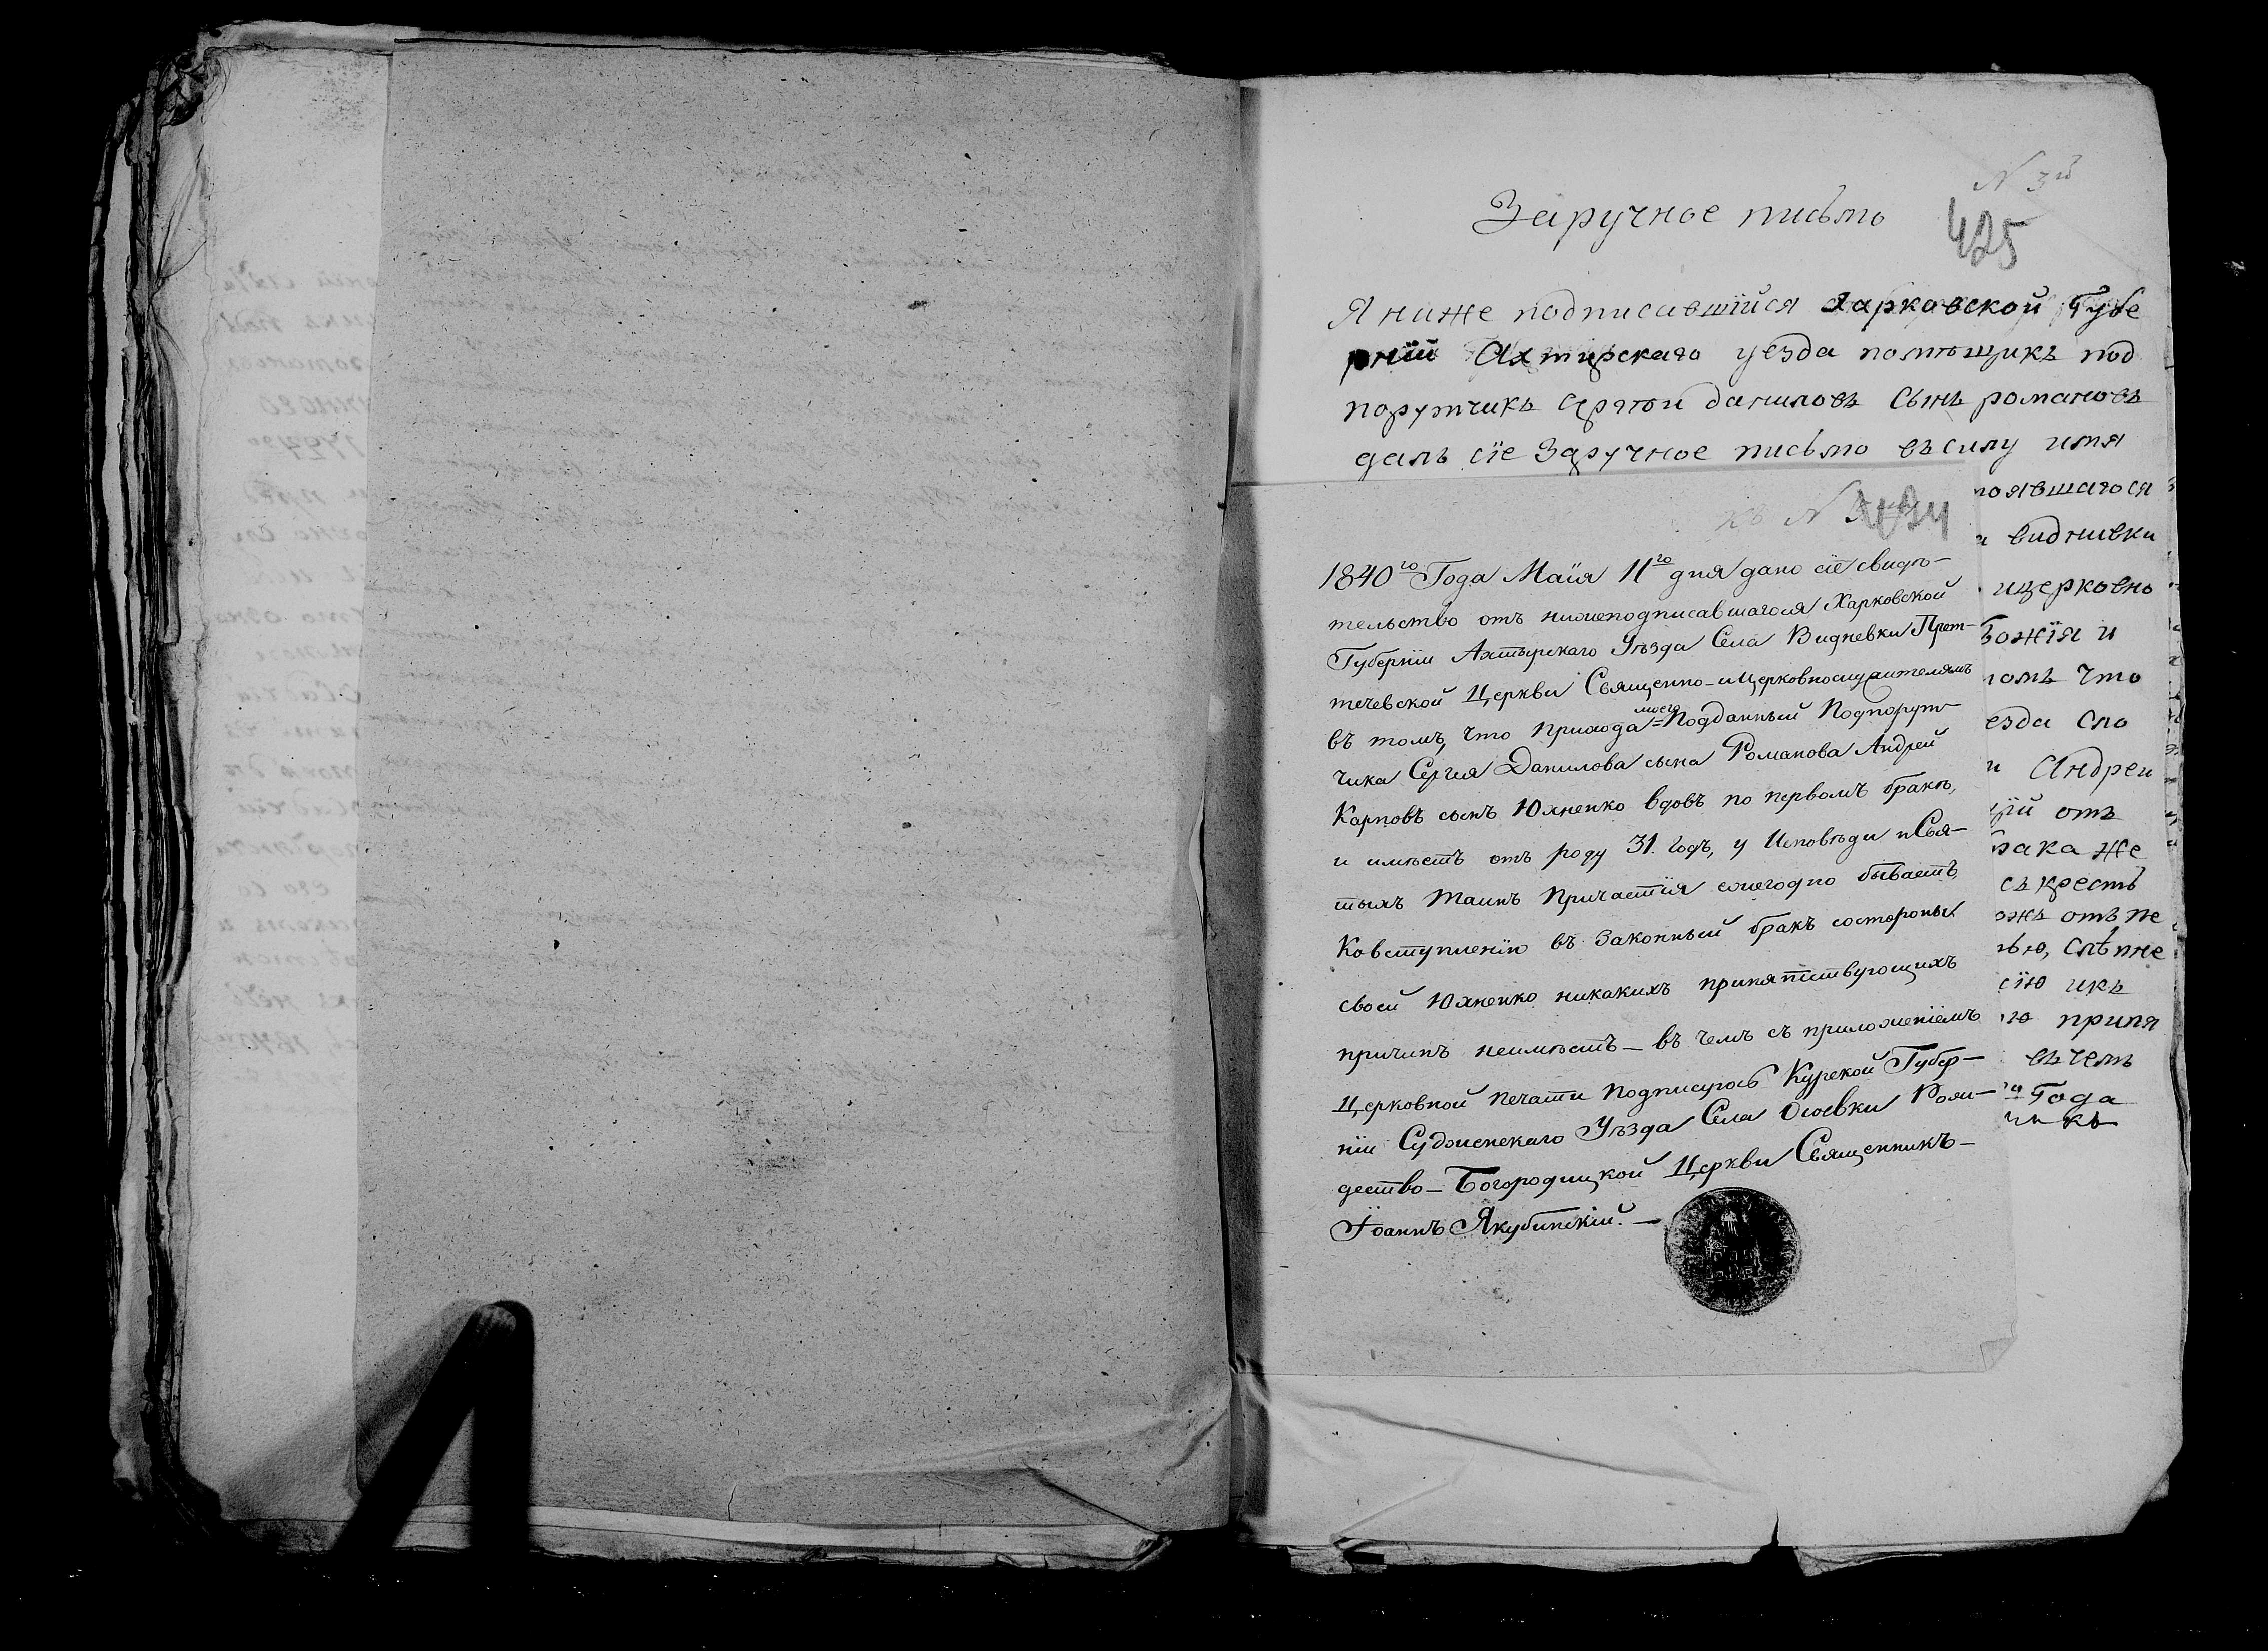 N 3й
Заручное письмо
425
Я ниже подписавшiйся Харковской Губе
рнiй Ахтирскаго уезда помѣщикъ под
порутчикъ Сергѣй даниловъ Сынъ романовъ
далъ сiе Заручное письмо въ силу имя
появшагося
видниевки
ицерковно
Божiя и
томъ что
езда сло
и Андреи
щiй отъ
рака же
съ кресть
ожъ отъ пе
нью, слѣпне
сiю икъ
ю припя
въ чемъ
го Года
чикъ
къ N
1840го Года Маiя 11го дня дано сiе свидѣ-
тельство отъ нижеподписавшагося Харковской
Губернiи Ахтырскаго Уѣзда Села Видневки Пред-
течевской Церкви Священно-и Церковнослужителямъ
въ томъ, что прихода моего Подданный Подпорут-
чика Сергия Данилова сына Романова Андрей
Карповъ сынъ Юхненко вдовъ по первомъ бракѣ,
и имѣетъ отъ роду 31. годъ, у Исповѣди и Свя-
тыхъ Таинъ Причастiя ежегодно бываетъ,
Ковступленiю въ Законный бракъ состороны
своей Юхненко никакихъ припятствующихъ
причинъ неимѣетъ – въ чемъ съ приложенiемъ
Церковной Печати подписуюсь Курской Губер-
нiи Суджескаго Уѣзда Села Осоевки Рож-
дество-Богородицкой Церкви Священникъ –
Iоаннъ Якубинскiй. –